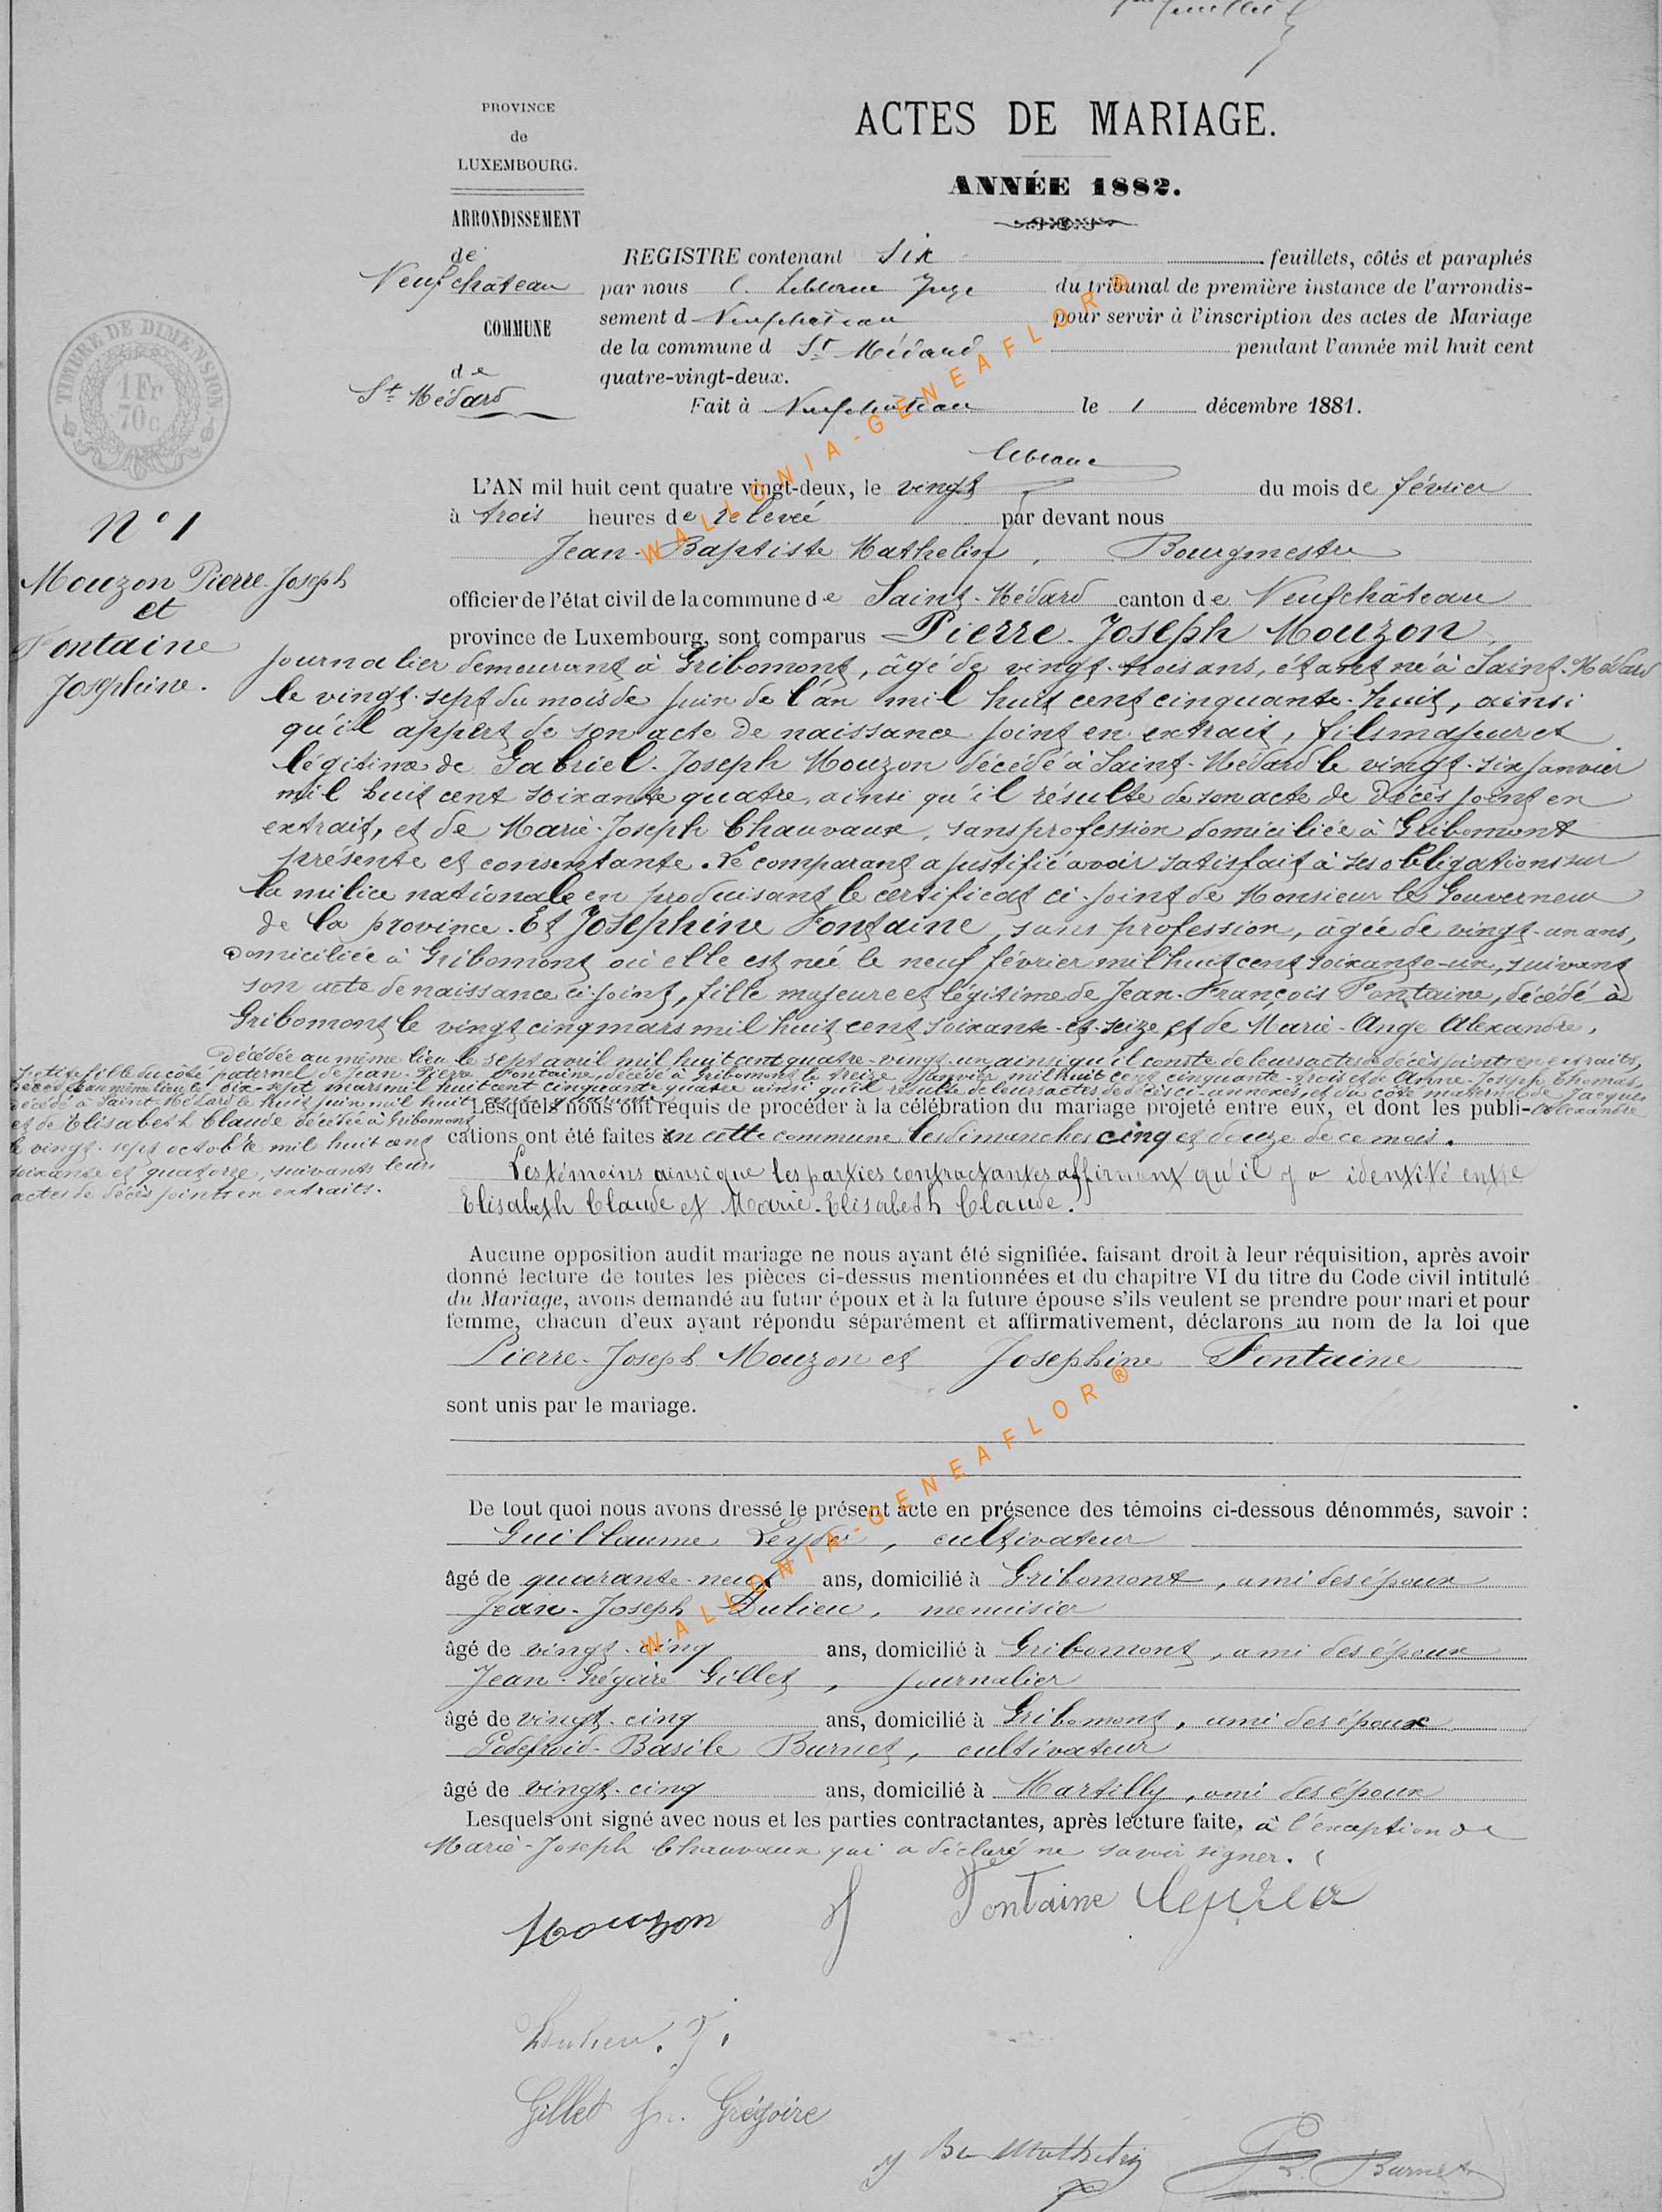 feuillet
PROVINCE
de
LUXEMBOURG.
ARRONDISSEMENT
de
Neufchâteau
COMMUNE
de
St Médard
TIMBRE DE DIMENSION
1 Fr
70c
ACTES DE MARIAGE.
ANNÉE 1882.
REGISTRE contenant Six feuillets, côtés et paraphés
par nous C. Leblanc Juge du tribunal de première instance de l'arrondis-
sement d Neufchateau pour servir à l'inscription des actes de Mariage
de la commune d St Médard pendant l'année mil huit cent
quatre-vingt-deux.
Fait à Neufchateau le 1 décembre 1881.
Leblanc
N° 1
Mouzon Pierre-Joseph
et
Fontaine
Josephine.
L'AN mil huit cent quatre vingt-deux, le vingt du mois de février
à trois heures de relevée par devant nous
Jean-Baptiste Mathelin, Bourgmestre
officier de l'état civil de la commune de Saint-Médard canton de Neufchâteau
province de Luxembourg, sont comparus Pierre-Joseph Mouzon,
journalier demeurant à Gribomont, âgé de vingt-trois ans, étant né à Saint-Médard
le vingt-sept du mois de juin de l'an mil huit cent cinquante-huit, ainsi
qu'il appert de son acte de naissance joint en extrait, fils majeur et
légitime de Gabriel-Joseph Mouzon décédé à Saint-Médard le vingt-six janvier
mil huit cent soixante quatre, ainsi qu'il résulte de son acte de décès joint en
extrait, et de Marie-Joseph Chauvaux, sans profession domiciliée à Gribomont
présente et consentante. Le comparant a justifié avoir satisfait à ses obligations sur
la milice nationale en produisant le certificat ci-joint de Monsieur le Gouverneur
de la province. Et Josephine Fontaine, sans profession, âgée de vingt-un ans,
domiciliée à Gribomont où elle est née le neuf février mil huit cent soixante-un, suivant
son acte de naissance ci-joint, fille majeure et légitime de Jean-François Fontaine, décédé à
Gribomont le vingt cinq mars mil huit cent soixante-et-seize et de Marie-Ange Alexandre,
décédée au même lieu le sept avril mil huit cent quatre-vingt-un ainsi qu'il conste de leurs actes de décès joints en extraits,
petite fille du côté paternel de Jean-Pierre Fontaine, décédé à Gribomont le treize Janvier mil huit cent cinquante-trois et de Anne-Joseph Thomas,
décédée au même lieu le dix-sept mars mil huit cent cinquante quatre ainsi qu'il résulte de leurs actes de décès ci-annexés, et du côté maternel de Jacques Alexandre
décédé à Saint-Médard le huit juin mil huit cent quarante
et de Elisabeth Claude décédée à Gribomont
le vingt-sept octobre mil huit cent
soixante et quatorze, suivants leurs
actes de décès joints en extraits.
Lesquels nous ont requis de procéder à la célébration du mariage projeté entre eux, et dont les publi-
cations ont été faites en cette commune les dimanches cinq et douze de ce mois.
Les témoins ainsi que les parties contractantes affirment qu'il y a identité entre
Elisabeth Claude et Marie-Elisabeth Claude.
Aucune opposition audit mariage ne nous ayant été signifiée, faisant droit à leur réquisition, après avoir
donné lecture de toutes les pièces ci-dessus mentionnées et du chapitre VI du titre du Code civil intitulé
du Mariage, avons demandé au futur époux et à la future épouse s'ils veulent se prendre pour mari et pour
femme, chacun d'eux ayant répondu séparément et affirmativement, déclarons au nom de la loi que
Pierre-Joseph Mouzon et Josephine Fontaine
sont unis par le mariage.
De tout quoi nous avons dressé le présent acte en présence des témoins ci-dessous dénommés, savoir :
Guillaume, cultivateur
âgé de quarante-neuf ans, domicilié à Gribomont, ami des époux
Jean-Joseph Dulieu, menuisier
âgé de vingt-cinq ans, domicilié à Gribomont, ami des époux
Jean-Grégoire Gillet, journalier
âgé de vingt-cinq ans, domicilié à Gribomont, ami des époux
Godefroid-Basile Burnet, cultivateur
âgé de vingt-cinq ans, domicilié à Martilly, ami des époux
Lesquels ont signé avec nous et les parties contractantes, après lecture faite, à l'exception de
Marie-Joseph Chauvaux qui a déclaré ne savoir signer.
Mouzon J Fontaine
Dulieu. J.
Gillet Jn. Grégoire
J Bte Mathelin G. Burnet
WALLONIA-GENEAFLOR®
WALLONIA-GENEAFLOR®